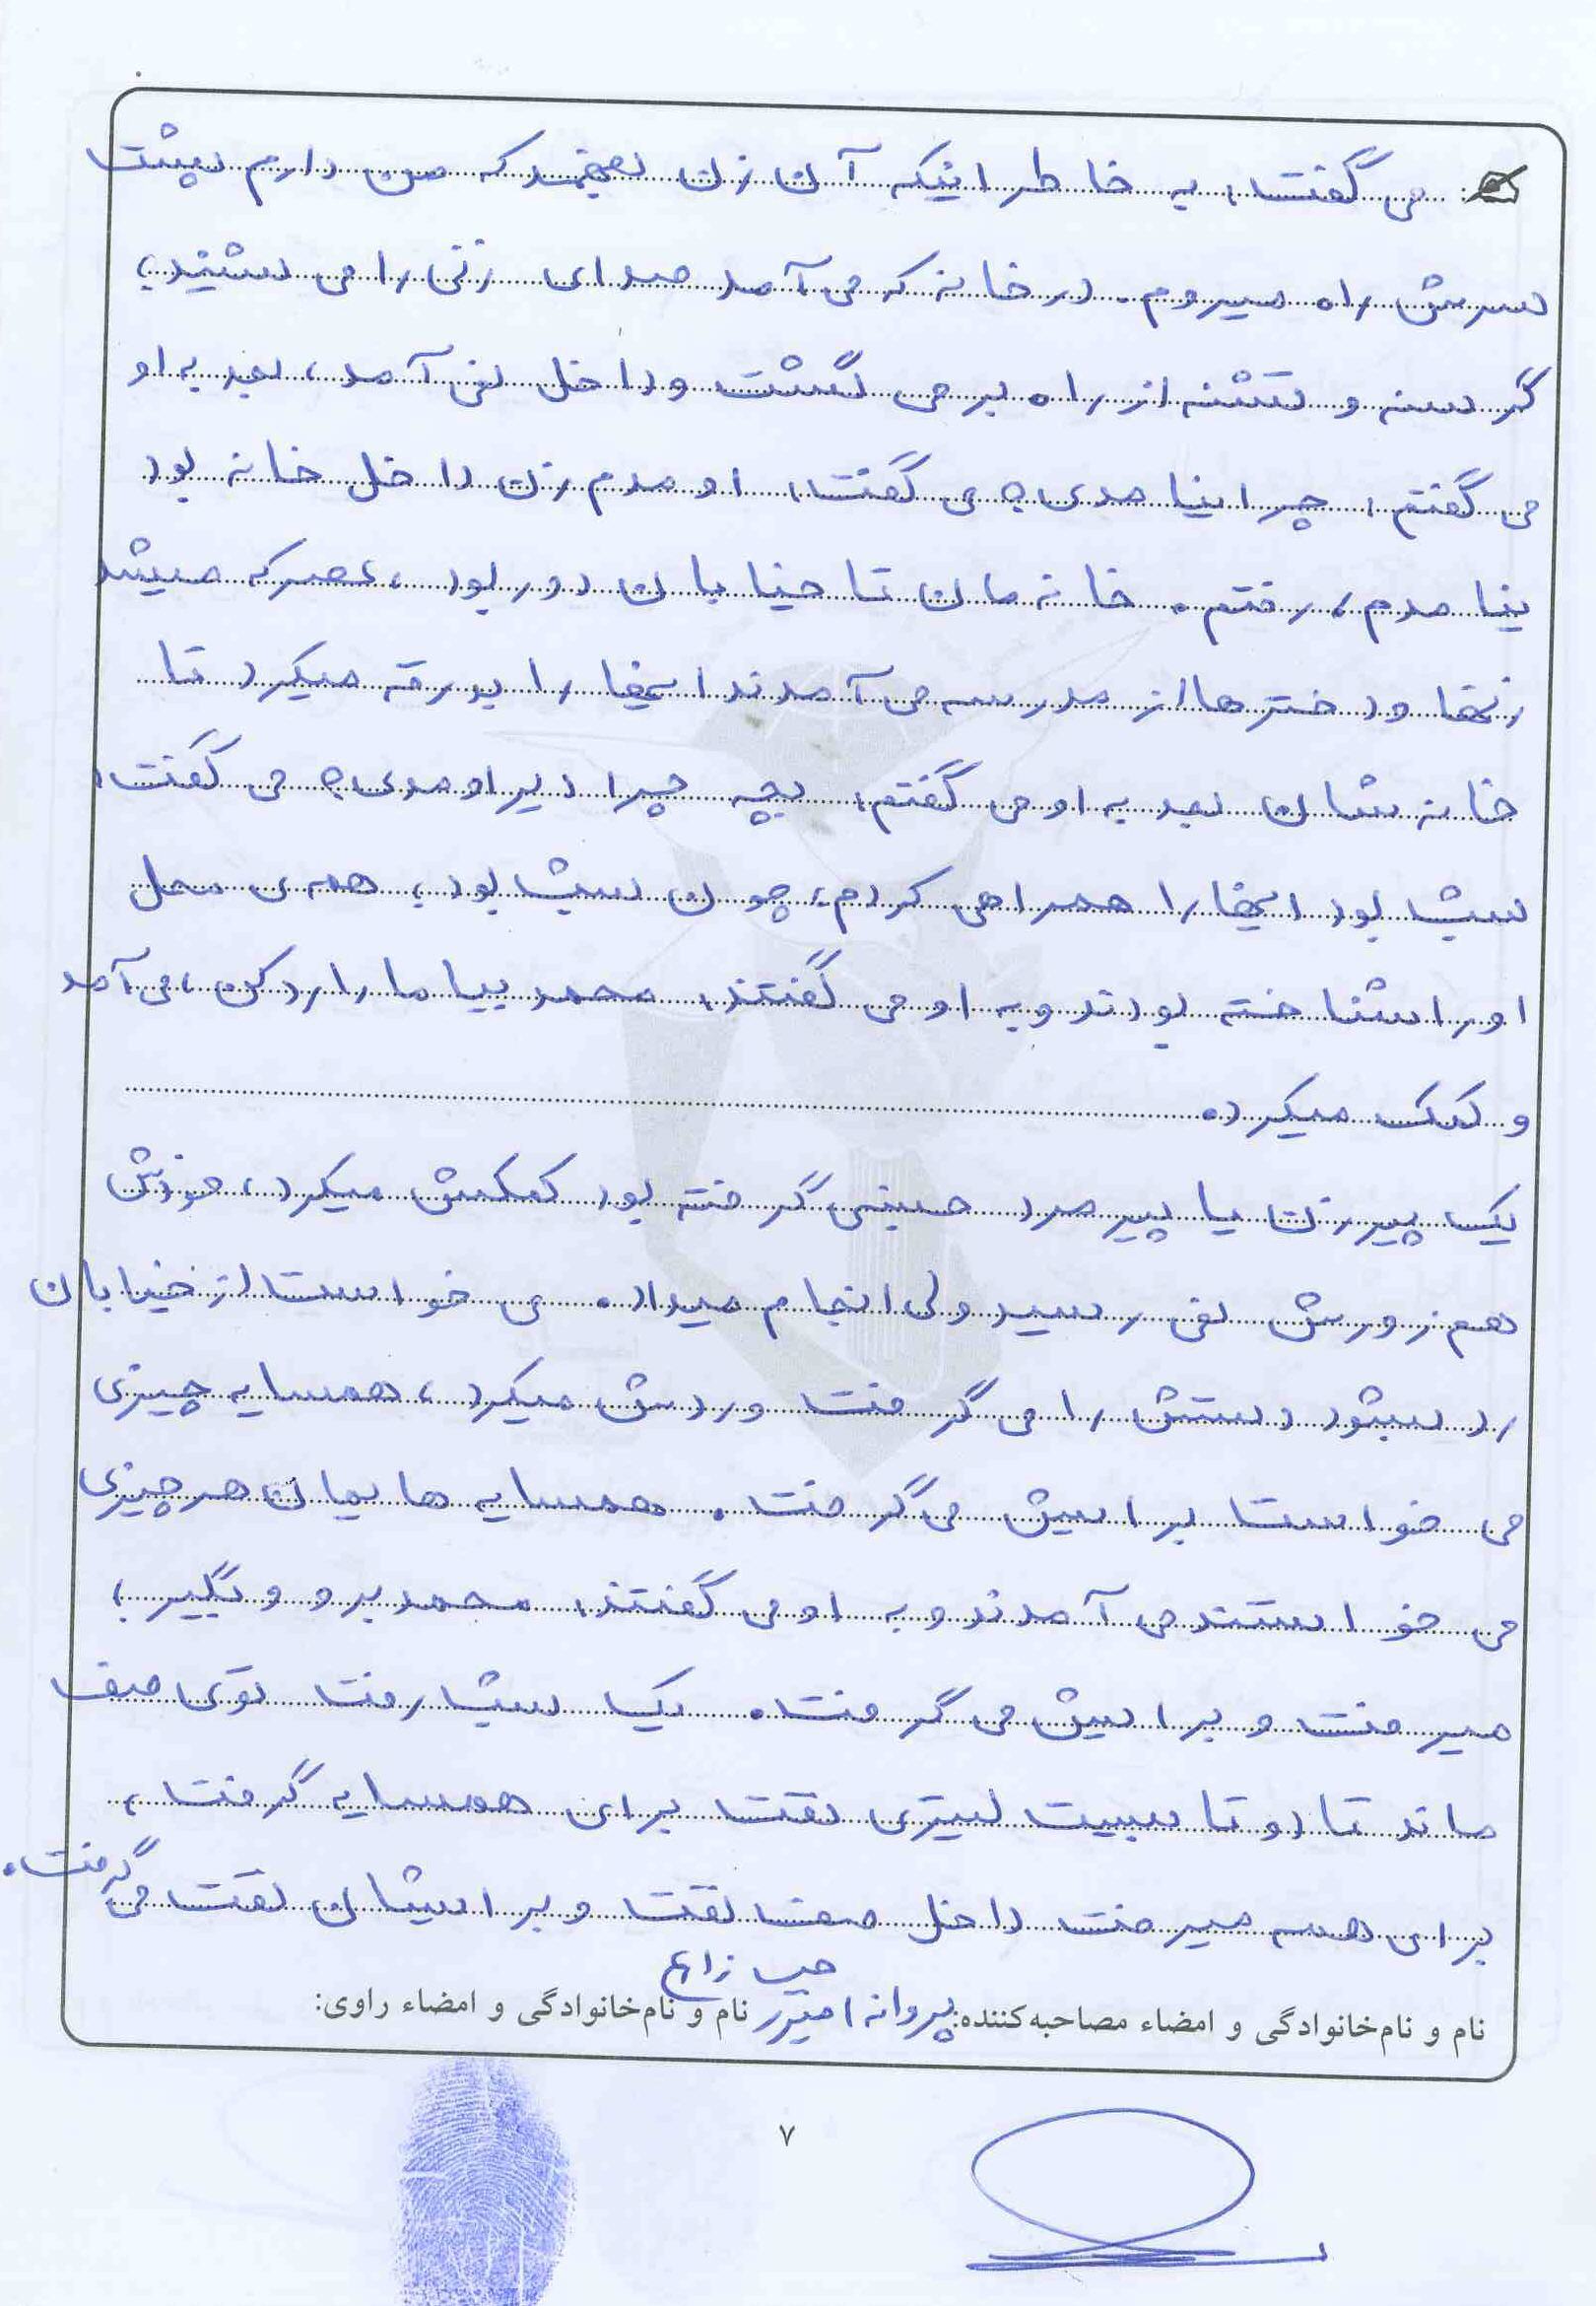 می گفت، به خاطر اینکه آن زن نفهمد که من دارم پشت
سرش راه میروم. در خانه که می آمد صدای زنی را می شنید؛
گرسنه و تشنه از راه برمی گشت و داخل نمی آمد، بعد به او
می گفتم، چرا نیامدی؟ می گفت، اومدم زن داخل خانه بود
نیامدم، رفتم. خانه مان تا خیابان دور بود، عصر که میشد
زنها و دخترها از مدرسه می آمدند اینها را بدرقه میکرد تا
خانه شان بعد به او می گفتم، بچه چرا دیر اومدی؟ می گفت،
شب بود اینها را همراهی کردم، چون شب بود، همه ی محل
او را شناخته بودند و به او می گفتند، محمد بیا ما را رد کن، می آمد
و کمک میکرد.
یک پیرزن یا پیرمرد چیزی گرفته بود کمکش میکرد، خودش
هم زورش نمی رسید ولی انجام میداد. می خواست از خیابان
رد بشود دستش را می گرفت و ردش میکرد، همسایه چیزی
می خواست برایش می گرفت. همسایه هایمان هر چیزی
می خواستند می آمدند و به او می گفتند، محمد برو و بگیر؛
میرفت و برایش می گرفت. یک شب رفت توی صف
ماند تا دو تا بیست لیتری نفت برای همسایه گرفت،
برای همه میرفت داخل صف نفت و برایشان نفت می گرفت.
نام و نام‌خانوادگی و امضاء مصاحبه‌کننده: پروانه امیرزر نام و نام‌خانوادگی و امضاء راوی:
۷